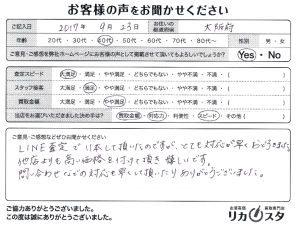 お客様の声をお聞かせください
ご記入日 2019年 9月 23日 お住いの都道府県 大阪府
年齢 20代・30代・40代・50代・60代・70代・80代～ 性別 男・女
ご意見・ご感想を弊社ホームページにお客様の声として掲載させて頂いてもよろしいでしょうか? Yes・No
査定スピード 大満足・満足・やや満足・どちらでもない・やや不満・不満・( )
スタッフ接客 大満足・満足・やや満足・どちらでもない・やや不満・不満・( )
買取金額 大満足・満足・やや満足・どちらでもない・やや不満・不満・( )
当店をお選びいただきました決め手は? 買取金額・対応力・利便性・スピード・その他( )
ご意見・ご感想などぜひお聞かせください
LINE査定で 頂いたのですが、とても対応が早くおどろきました。
他店よりも高い価格を付けて頂き嬉しいです。
問い合わせなどの対応も早くして頂いたりありがとうございました。
ご協力ありがとうございました。
この度は誠にありがとうございました。
お酒高価 買取専門店
リカスタ